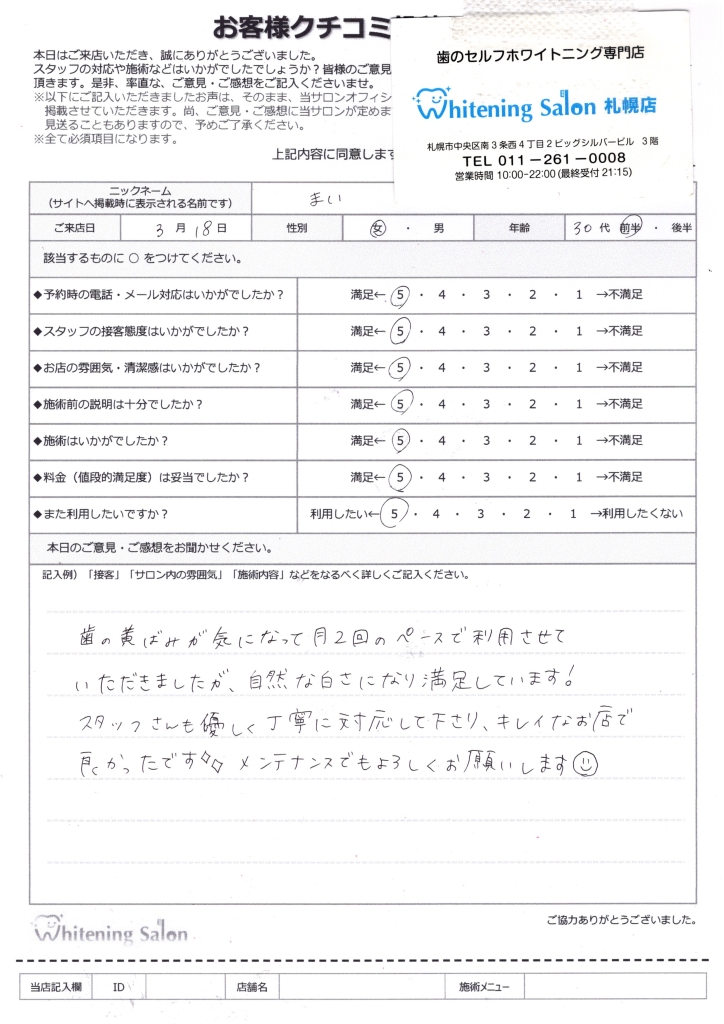 お客様クチコミ
本日はご来店いただき、誠にありがとうございました。
スタッフの対応や施術などはいかがでしたでしょうか？皆様のご意見
頂きます。是非、率直な、ご意見・ご感想をご記入くださいませ。
※以下にご記入いただきましたお声は、そのまま、当サロンオフィシ
掲載させていただきます。尚、ご意見・ご感想に当サロンが定めま
見送ることもありますので、予めご了承ください。
※全て必須項目になります。
上記内容に同意します
歯のセルフホワイトニング専門店
Whitening Salon 札幌店
札幌市中央区南3条西4丁目2ビッグシルバービル 3階
TEL 011-261-0008
営業時間 10:00-22:00 (最終受付 21:15)
ニックネーム
(サイトへ掲載時に表示される名前です)
まい
ご来店日 3月18日 性別 女・男 年齢 30代 前半・後半
該当するものに○をつけてください。
◆予約時の電話・メール対応はいかがでしたか？ 満足←5・4・3・2・1→不満足
◆スタッフの接客態度はいかがでしたか？ 満足←5・4・3・2・1→不満足
◆お店の雰囲気・清潔感はいかがでしたか？ 満足←5・4・3・2・1→不満足
◆施術前の説明は十分でしたか？ 満足←5・4・3・2・1→不満足
◆施術はいかがでしたか？ 満足←5・4・3・2・1→不満足
◆料金（値段的満足度）は妥当でしたか？ 満足←5・4・3・2・1→不満足
◆また利用したいですか？ 利用したい←5・4・3・2・1→利用したくない
本日のご意見・ご感想をお聞かせください。
記入例）「接客」「サロン内の雰囲気」「施術内容」などをなるべく詳しくご記入ください。
歯の黄ばみが気になって月2回のペースで利用させて
いただきましたが、自然な白さになり満足しています!
スタッフさんも優しく丁寧に対応して下さり、キレイなお店で
良かったです メンテナンスでもよろしくお願いします
ご協力ありがとうございました。
Whitening Salon
当店記入欄 ID 店舗名 施術メニュー